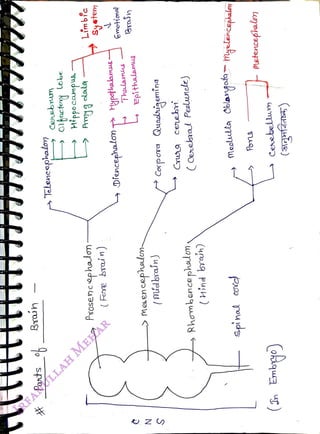 * Parts of Brain —
IRFANULLAH MEHAR
CNS
Prosencephalon
(Fore brain)
Telencephalon
Cerebrum
Olfactory lobe
Hippocampus
Amygdala
Limbic
System
Emotional
Brain
Diencephalon
Hypothalamus
Thalamus
Epithalamus
Mesencephalon
(Midbrain)
Corpora Quadrigemina
Crura cerebri
(Cerebral Peduncle)
Rhombencephalon
(Hind brain)
Medulla Oblongata — Myelencephalon
Pons
Cerebellum
(अनुमस्तिष्क)
Metencephalon
Spinal cord
(In Embryo)